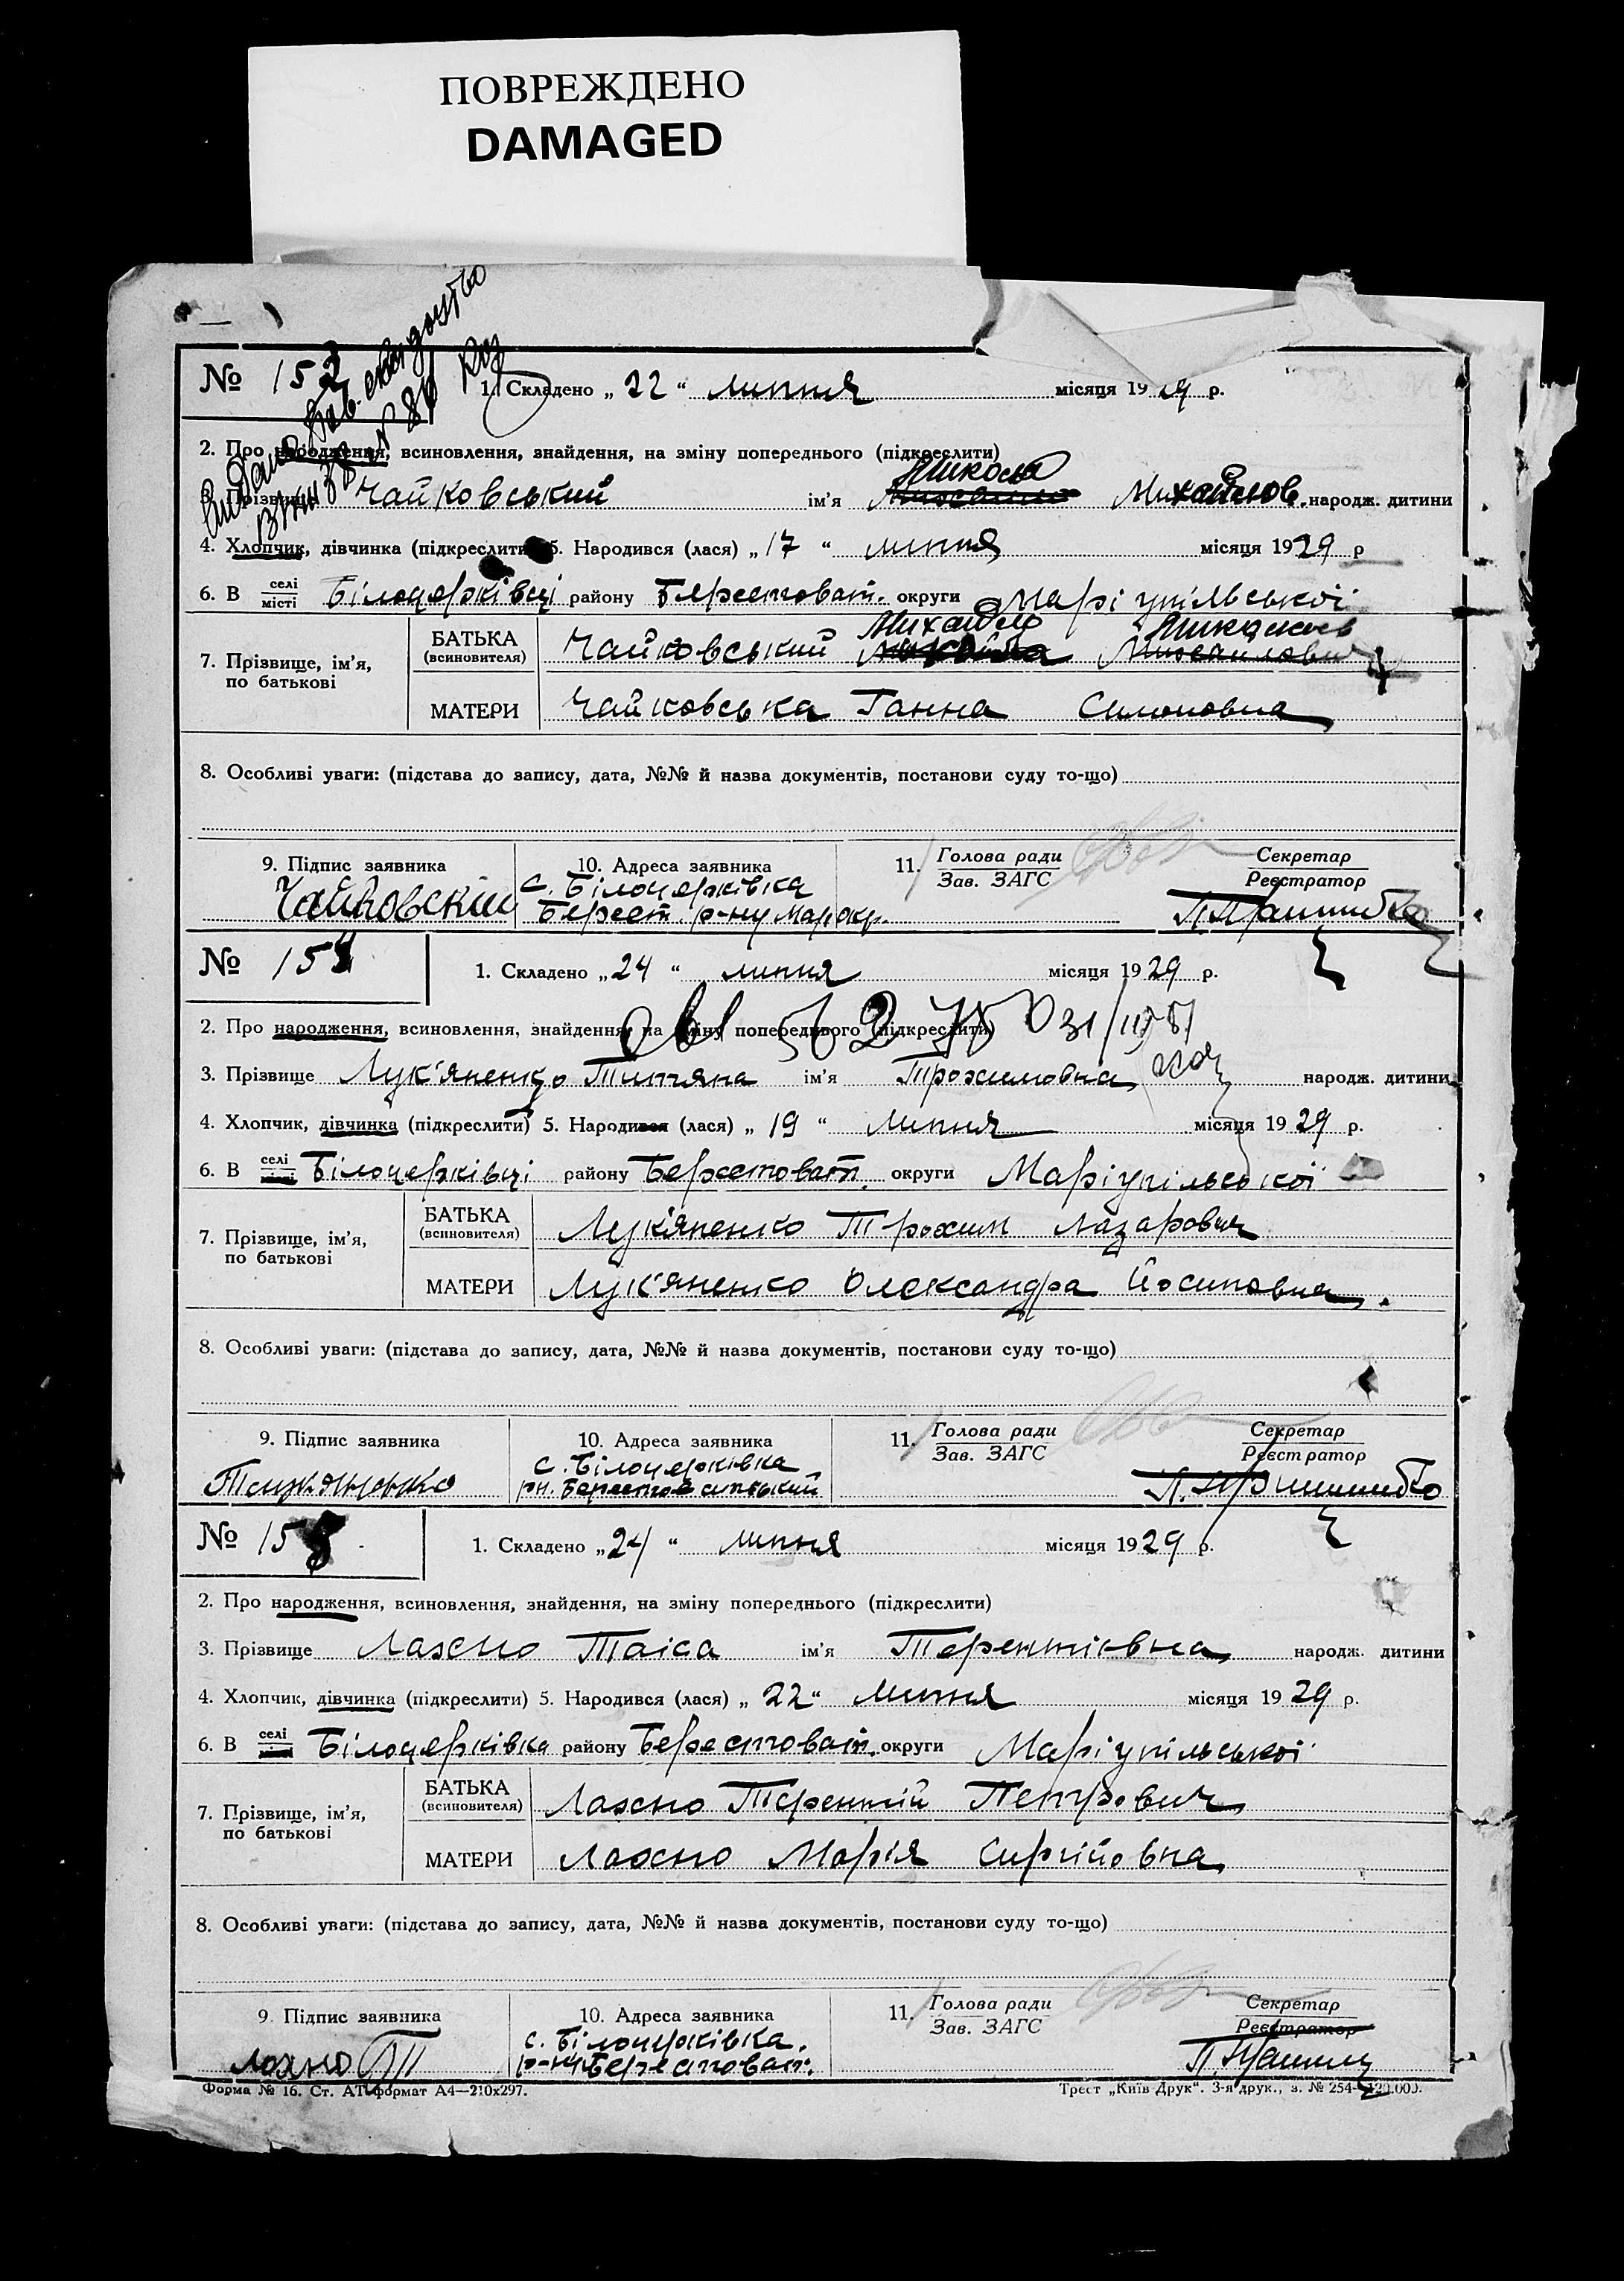 ПОВРЕЖДЕНО
DAMAGED
№ 153 1. Складено „ 22 “ липня місяця 1929 р.
2. Про народження, всиновлення, знайдення, на зміну попереднього (підкреслити)
Микола
3. Прізвище Чайковський ім'я Михайлов. народж. дитини
4. Хлопчик, дівчинка (підкреслити) 5. Народився (лася) „ 17 “ липня місяця 1929 р
6. В селі місті Білоцерківці району Берестоват. округи Маріупільської
Михайло Миколаєв
7. Прізвище, ім'я, по батькові БАТЬКА (всиновителя) Чайковський
МАТЕРИ Чайковська Ганна Симоновна
8. Особливі уваги: (підстава до запису, дата, №№ й назва документів, постанови суду то-що)
9. Підпис заявника 10. Адреса заявника 11. Голова ради Зав. ЗАГС Секретар Реєстратор
Чайковский с. Білоцерківка
Берест. р-ну Мар окр.
№ 154 1. Складено „ 24 “ липня місяця 1929 р.
2. Про народження, всиновлення, знайдення, на зміну попереднього (підкреслити)
3. Прізвище Лук'яненко Титяна ім'я Трохимовна народж. дитини
4. Хлопчик, дівчинка (підкреслити) 5. Народився (лася) „ 19 “ липня місяця 1929 р.
6. В селі Білоцерківці району Берестоват. округи Маріупільської
7. Прізвище, ім'я, по батькові БАТЬКА (всиновителя) Лук'яненко Трохим Лазарович
МАТЕРИ Лук'яненко Олександра Йосиповна.
8. Особливі уваги: (підстава до запису, дата, №№ й назва документів, постанови суду то-що)
9. Підпис заявника 10. Адреса заявника 11. Голова ради Зав. ЗАГС Секретар Реєстратор
с. Білоцерківка
рн. Берестоватський
№ 15 1. Складено „ 24 “ липня місяця 1929 р.
2. Про народження, всиновлення, знайдення, на зміну попереднього (підкреслити)
3. Прізвище Лахно Таіса ім'я Терентіївна народж. дитини
4. Хлопчик, дівчинка (підкреслити) 5. Народився (лася) „ 22 “ липня місяця 1929 р.
6. В селі Білоцерківка району Берестоват. округи Маріупільської
7. Прізвище, ім'я, по батькові БАТЬКА (всиновителя) Лахно Терентій Петрович
МАТЕРИ Лахно Марія Сиргійовна
8. Особливі уваги: (підстава до запису, дата, №№ й назва документів, постанови суду то-що)
9. Підпис заявника 10. Адреса заявника 11. Голова ради Зав. ЗАГС Секретар Реєстратор
Лахно Т с. Білоцерківка.
р-ну Берестоват.
Форма № 16. Ст. АТ формат А4—210х297. Трест „Київ Друк“. 3-я друк., з. № 254-